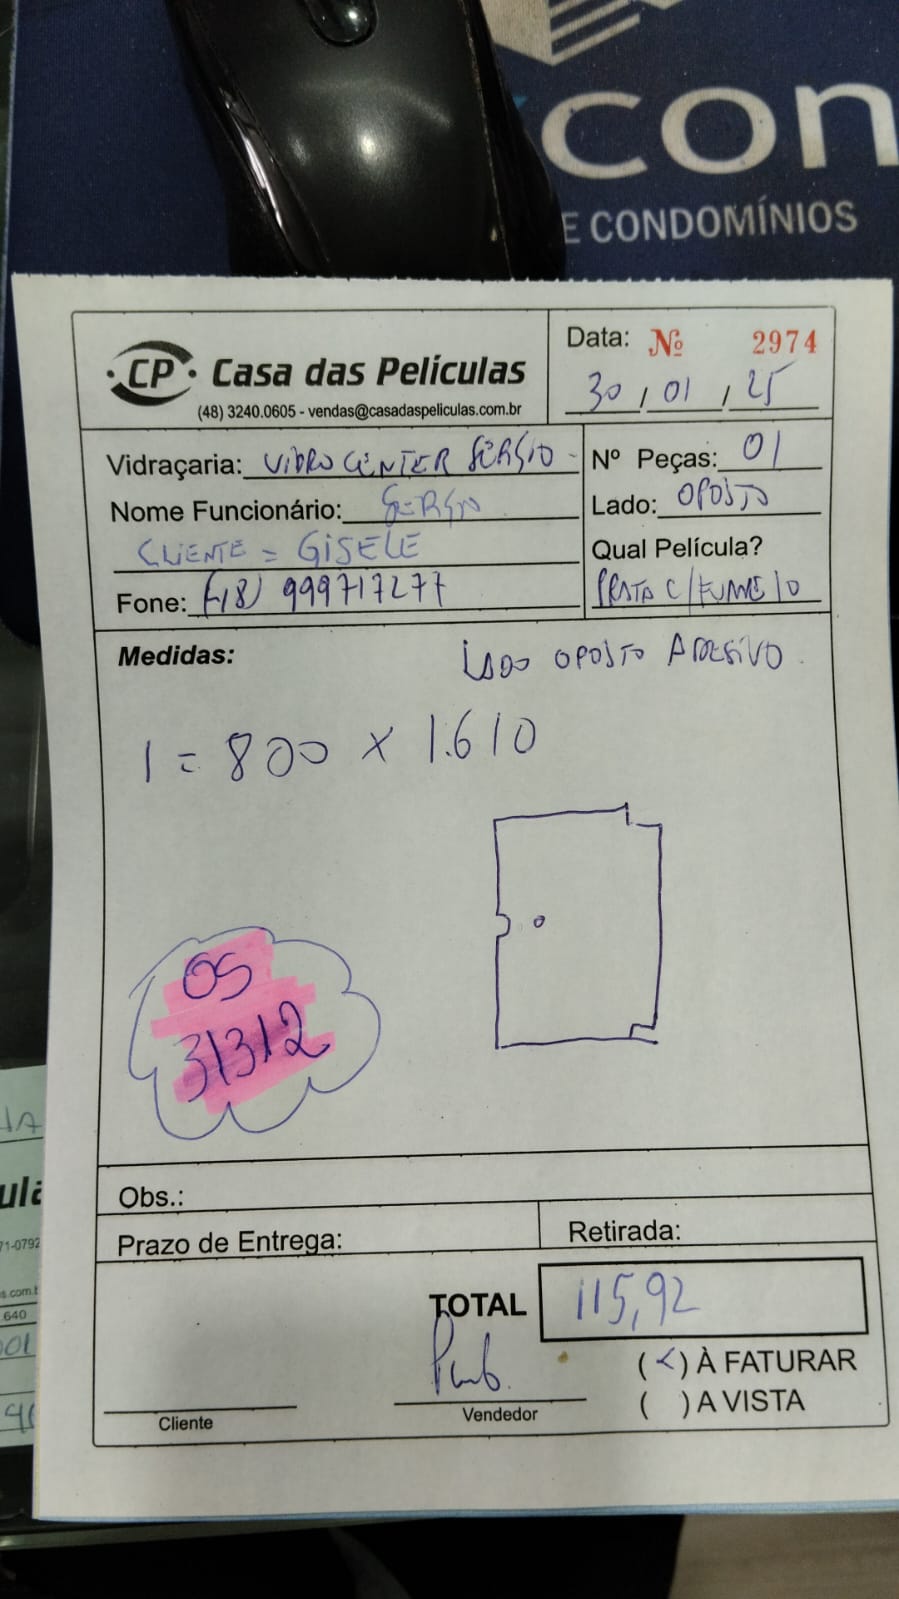 con
E CONDOMÍNIOS
CP Casa das Películas
(48) 3240.0605 - vendas@casadaspeliculas.com.br
Data: Nº 2974
30 / 01 / 25
Vidraçaria: VIDRO CENTER SÉRGIO -
Nº Peças: 01
Nome Funcionário: SERGIO
Lado: OPOSTO
CLIENTE = GISELE
Qual Película?
Fone: (48) 999717277
PRATA C/FUME 10
Medidas:
LADO OPOSTO ADESIVO.
1 = 800 x 1.610
OS
31312
Obs.:
Prazo de Entrega:
Retirada:
TOTAL 115,92
À FATURAR
( ) A VISTA
Cliente
Vendedor
71-0792
s.com.b
640
001